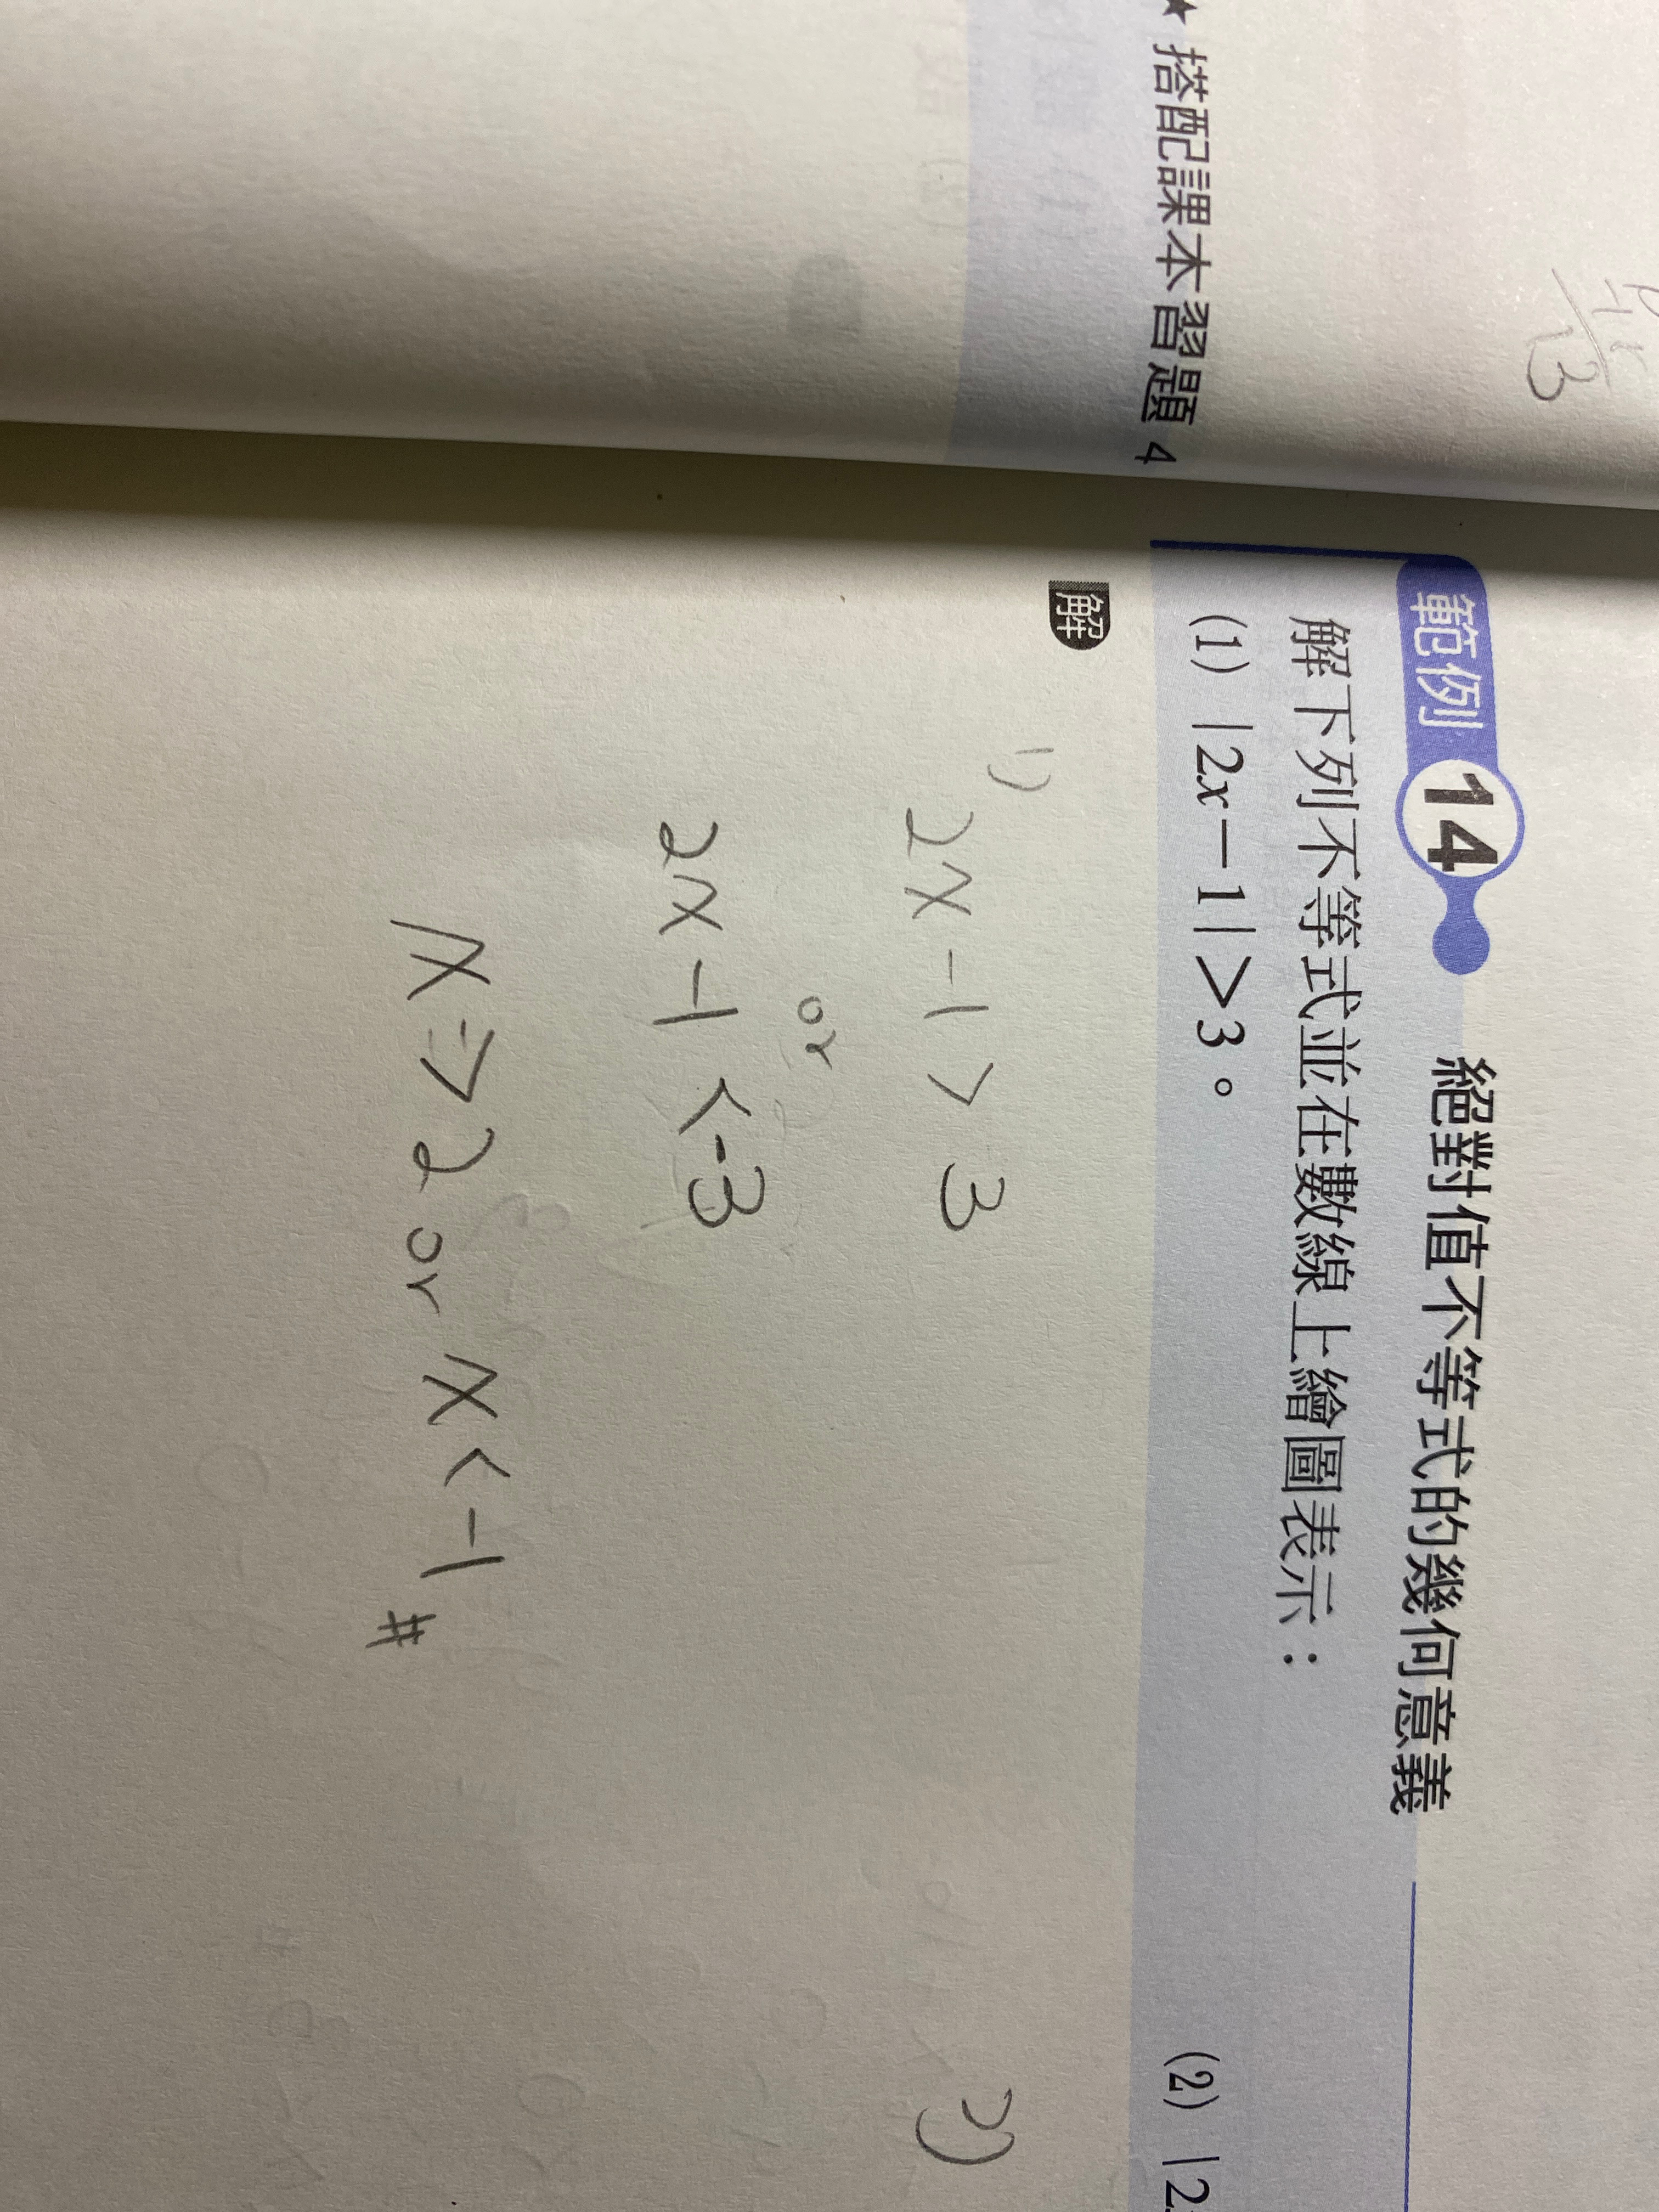 ★ 搭配課本習題 4
範例 14 絕對值不等式的幾何意義
解下列不等式並在數線上繪圖表示：
(1) |2x－1|＞3。 (2) |2
解
1) 2x - 1 > 3
or
2x - 1 < -3
x > 2 or x < -1 #
2)